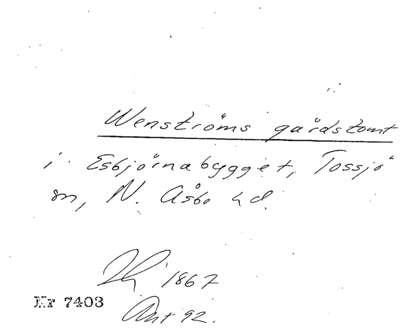 Wenströms gårdstomt
i Esbjörnabygget, Tossjö
sn, N. Åsbo hd.
1867
Nr 7403
Ant 92.